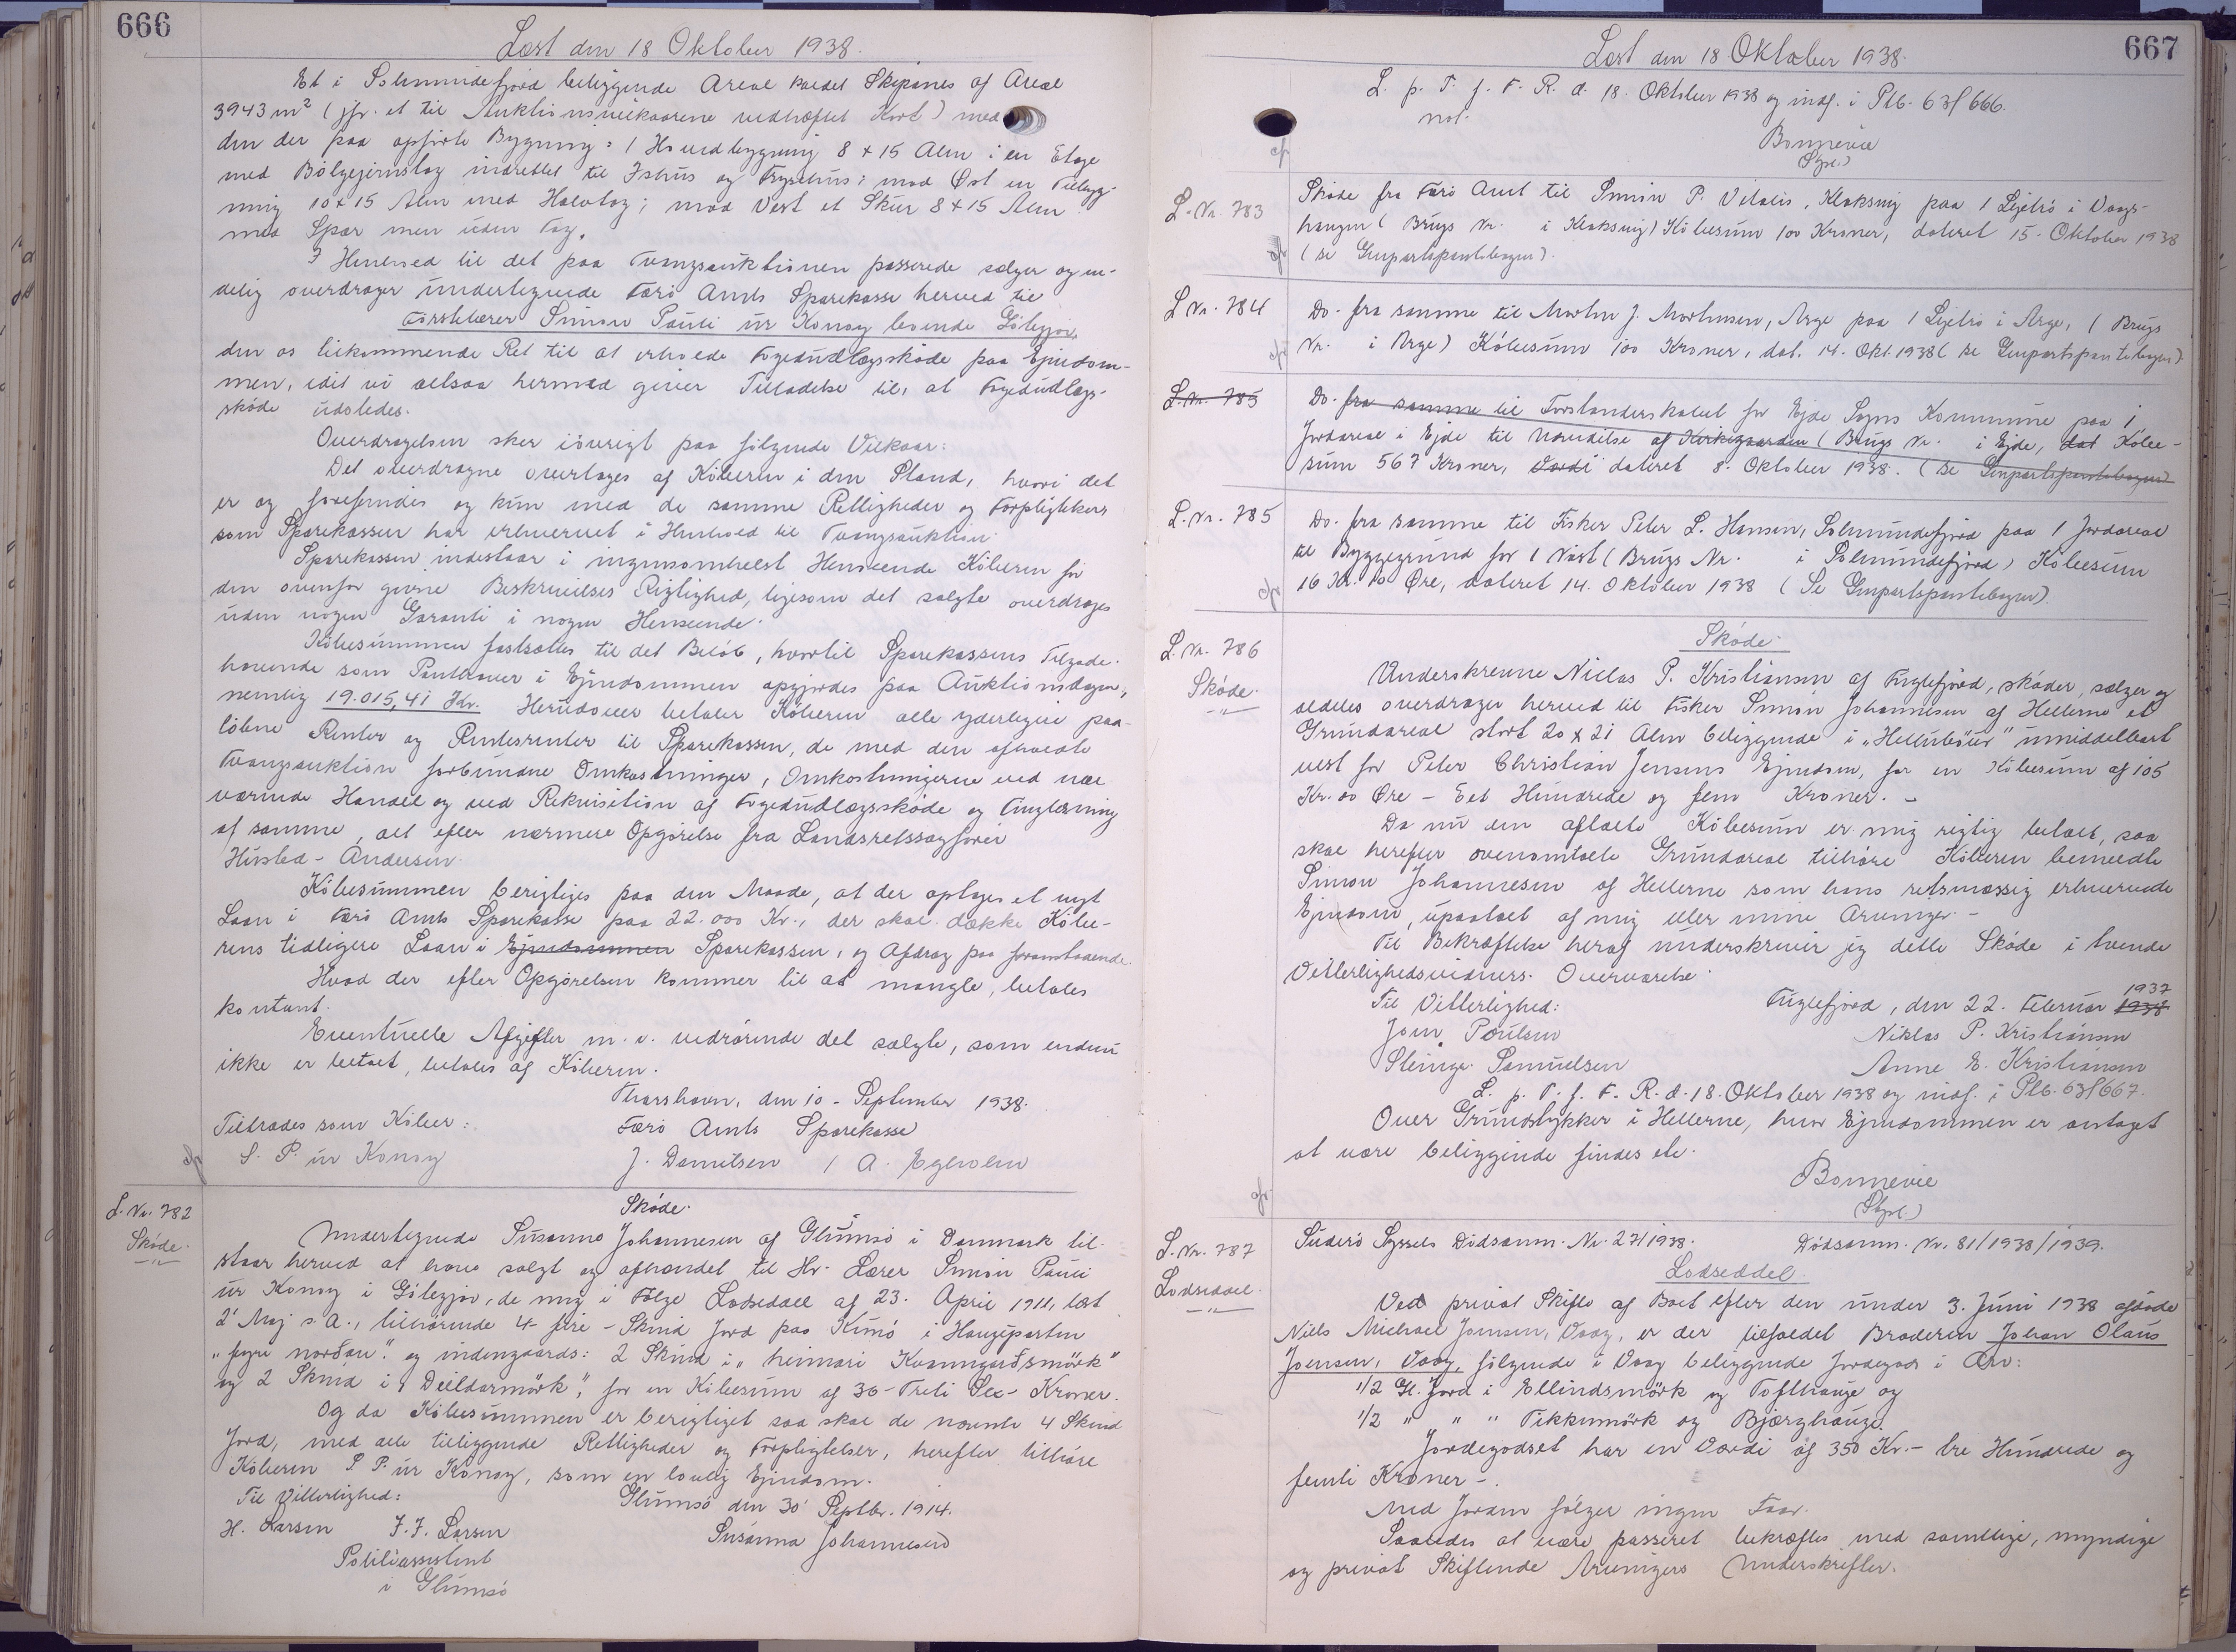 666
Læst den 18 Oktober 1938.
Et i Solmundefjord beliggende Areal kaldet Skipanes af Areal
3943 m² (jfr. et til Auktionsvilkaarene vedhæftet Kort) med
den der paa opførte Bygning: 1 Hovedbygning 8 x 15 Alen i en Etage
med Bølgejernstag indrettet til Ishus og Frysehus; mod Øst en Tilbyg-
ning 10 x 15 Alen med Halvtag; mod Vest et Skur 8 x 15 Alen
med Spær men uden Tag.
I Henhold til det paa Tvangsauktionen passerede sælger og en-
delig overdrager undertegnede Færø Amts Sparekasse herved til
Førstelærer Simun Pauli úr Konoy boende Gøtegjov,
den os tilkommende Ret til at erholde Fogedudlægsskøde paa Ejendom-
men, idet vi altsaa hermed giver Tilladelse til, at Fogedudlægs-
skøde udstedes.
Overdragelsen sker iøvrigt paa følgende Vilkaar:
Det overdragne overtages af Køberen i den Stand, hvori det
er og forefindes og kun med de samme Rettigheder og Forpligtelser
som Sparekassen har erhvervet i Henhold til Tvangsauktion.
Sparekassen indestaar i ingensomhelst Henseende Køberen for
den ovenfor givne Beskrivelses Rigtighed, ligesom det solgte overdrages
uden nogen Garanti i nogen Henseende.
Købesummen fastsættes til det Beløb, hvortil Sparekassens Tilgode-
havende som Panthaver i Ejendommen opgjordes paa Auktionsdagen,
nemlig 19.015,41 Kr. Herudover betaler Køberen alle yderligere paa-
løbne Renter og Rentesrenter til Sparekassen, de med den afholdte
Tvangsauktion forbundne Omkostninger, Omkostningerne ved nær-
værende Handel og ved Rekvisition af Fogedudlægsskøde og Tinglæsning
af samme, alt efter nærmere Opgørelse fra Landsretssagfører
Husted-Andersen.
Købesummen berigtiges paa den Maade, at der optages et nyt
Laan i Færø Amts Sparekasse paa 22.000 Kr., der skal dække Købe-
rens tidligere Laan i Ejendommen Sparekassen, og Afdrag paa foranstaaende.
Hvad der efter Opgørelsen kommer til at mangle, betales
kontant.
Eventuelle Afgifter m.v. vedrørende det solgte, som endnu
ikke er betalt, betales af Køberen.
Thorshavn, den 10. September 1938.
Tiltrædes som Køber: Færø Amts Sparekasse
S. P. úr Konoy J. Danielsen / A. Egholm
L. Nr. 782
Skøde.
Skøde.
Undertegnede Susanna Johannesen af Glumsø i Danmark til-
staar herved at have solgt og afhændet til Hr. Lærer Simun Pauli
úr Konoy i Gøtegjov, de mig i Følge Lodseddel af 23. April 1911, læst
2' Maj s.A., tilhørende 4 - fire - Skind Jord paa Kunø i Haugiparten
"fyri norðan" og indengaards: 2 Skind i "heimari Kvanngarðsmørk"
og 2 Skind i "Deildarmørk", for en Købesum af 36 - Treti Sex - Kroner.
Og da Købesummen er berigtiget saa skal de nævnte 4 Skind
Jord, med alle tilliggende Rettigheder og Forpligtelser, herefter tilhøre
Køberen S. P. úr Konoy, som en lovlig Ejendom.
Glumsø den 30' Septbr. 1914.
Til Vitterlighed:
H. Larsen J. J. Larsen Susanna Johannesen
Politiassistent
i Glumsø
667
Læst den 18 Oktober 1938.
L. p. T. f. F. R. d. 18. Oktober 1938 og indf. i Ptb. 63f 666.
not.
Bonnevie
(Spl.)
L. Nr. 783
Skøde fra Færø Amt til Simun P. Vitalis, Klaksvig paa 1 Lejetrø i Vaags-
haugen (Brugs Nr. i Klaksvig) Købesum 100 Kroner, dateret 15. Oktober 1938
(se Genpartspantebogen).
L Nr. 784
Do. fra samme til Morten J. Mortensen, Arge paa 1 Lejetrø i Arge, (Brugs
Nr. i Arge) Købesum 100 Kroner, dat. 14. Okt. 1938 (se Genpartspantebogen)
L. Nr. 785
Do. fra samme til Forstanderskabet for Ejde Sogns Kommune paa 1
Jordareal i Ejde til Udvidelse af Kirkegaarden (Brugs Nr. i Ejde, dat Købe-
sum 567 Kroner, Værdi dateret 8. Oktober 1938. (se Genpartspantebogen)
L. Nr. 785
Do. fra samme til Fisker Peter L. Hansen, Solmundefjord paa 1 Jordareal
til Byggegrund for 1 Nøst (Brugs Nr. i Solmundefjord) Købesum
16 Kr. 10 Øre, dateret 14. Oktober 1938 (Se Genpartspantebogen).
L. Nr. 786
Skøde.
Skøde.
Underskrevne Niclas P. Kristiansen af Fuglefjord, skøder, sælger og
aldeles overdrager herved til Fisker Simon Johannesen af Hellerne et
Grundareal stort 20 x 21 Alen beliggende i "Hellubøur" umiddelbart
vest for Peter Christian Jensens Ejendom, for en Købesum af 105
Kr. 00 Øre - Eet Hundrede og fem Kroner. -
Da nu den aftalte Købesum er mig rigtig betalt, saa
skal herefter ovenomtalte Grundareal tilhøre Køberen bemeldte
Simon Johannesen af Hellerne som hans retsmæssig erhvervede
Ejendom, upaatalt af mig eller mine Arvinger. -
Til Bekræftelse heraf underskriver jeg dette Skøde i tvende
Vitterlighedsvidners Overværelse.
1937
Til Vitterlighed: Fuglefjord, den 22. Februar 1938
Jom Poulsen Niklas P. Kristiansen
Steing. Samuelsen Anne E. Kristiansen
L. p. T. f. F. R. d. 18. Oktober 1938 og indf. i Ptb. 63f 667.
Over Grundstykker i Hellerne, hvor Ejendommen er antaget
at være beliggende findes ele.
Bonnevie
(Spl.)
L. Nr. 787
Lodseddel.
Suderø Syssels Dødsanm. Nr. 27/1938. Dødsanm. Nr. 81/1938/1939.
Lodseddel.
Ved privat Skifte af Boet efter den under 3. Juni 1938 afdøde
Niels Michael Joensen, Vaag, er der tilfaldet Broderen Johan Olaus
Joensen, Vaag, følgende i Vaag beliggende Jordegods i Arv:
1/2 Gl. Jord i Ellindsmørk og Tofthauge og
1/2 " " " Tikkumørk og Bjærghauge.
Jordegodset har en Værdi af 350 Kr. - tre Hundrede og
femti Kroner -.
Med Jorden følger ingen Faar.
Saaledes at være passeret bekræftes med samtlige, myndige
og privat Skiftende Arvingers Underskrifter.